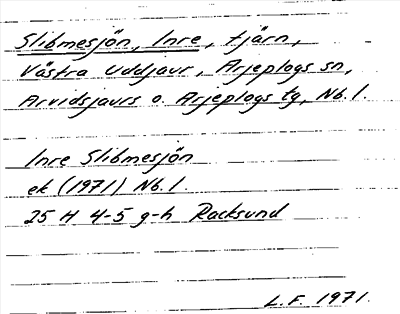 Slibmesjön, Inre, tjärn,
Västra Uddjaur, Arjeplogs sn,
Arvidsjaurs o. Arjeplogs tg, Nb. l.
Inre Slibmesjön
ek (1971) Nb. l.
25 H 4-5 g-h Racksund
L.F. 1971.